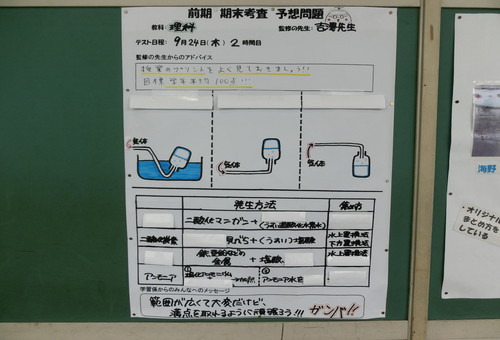 前期 期末考査 予想問題
教科: 理科 監修の先生: 吉澤先生
テスト日程: 9月24日(木) 2時間目
監修の先生からのアドバイス
授業のプリントをよく見ておきましょう!!
目標 学年平均100点!!!
気体
気体
気体
発生方法
二酸化マンガン+
二酸化炭素 貝がら+(うすい)塩酸 水上置換法
下方置換法
金属 + 塩酸、 水上置換法
アンモニア ① ② アンモニア水を
学習係からのみんなへのメッセージ
範囲が広くて大変だけど、
満点を取れるように頑張ろう!!! ガンバ!!
海野
・オリジナル
まとめ方を
している